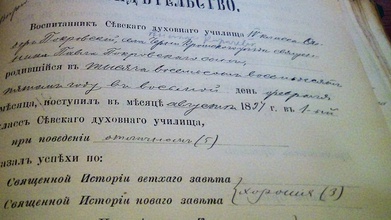 ДѢТЕЛЬСТВО,
Воспитанникъ Сѣвскаго духовнаго училища IV класса
Покровскій, сынъ
Павла Покровскаго
родившійся въ тысяча восемьсотъ восемьдесятъ
пятомъ году въ восьмой день февраля
мѣсяца, поступилъ въ мѣсяцѣ августѣ 1897 г. въ 1-ый
классъ Сѣвскаго духовнаго училища,
при поведеніи отличномъ (5)
азалъ успѣхи по:
Священной Исторіи ветхаго завѣта
хорошія (3)
Священной Исторіи новаго завѣта